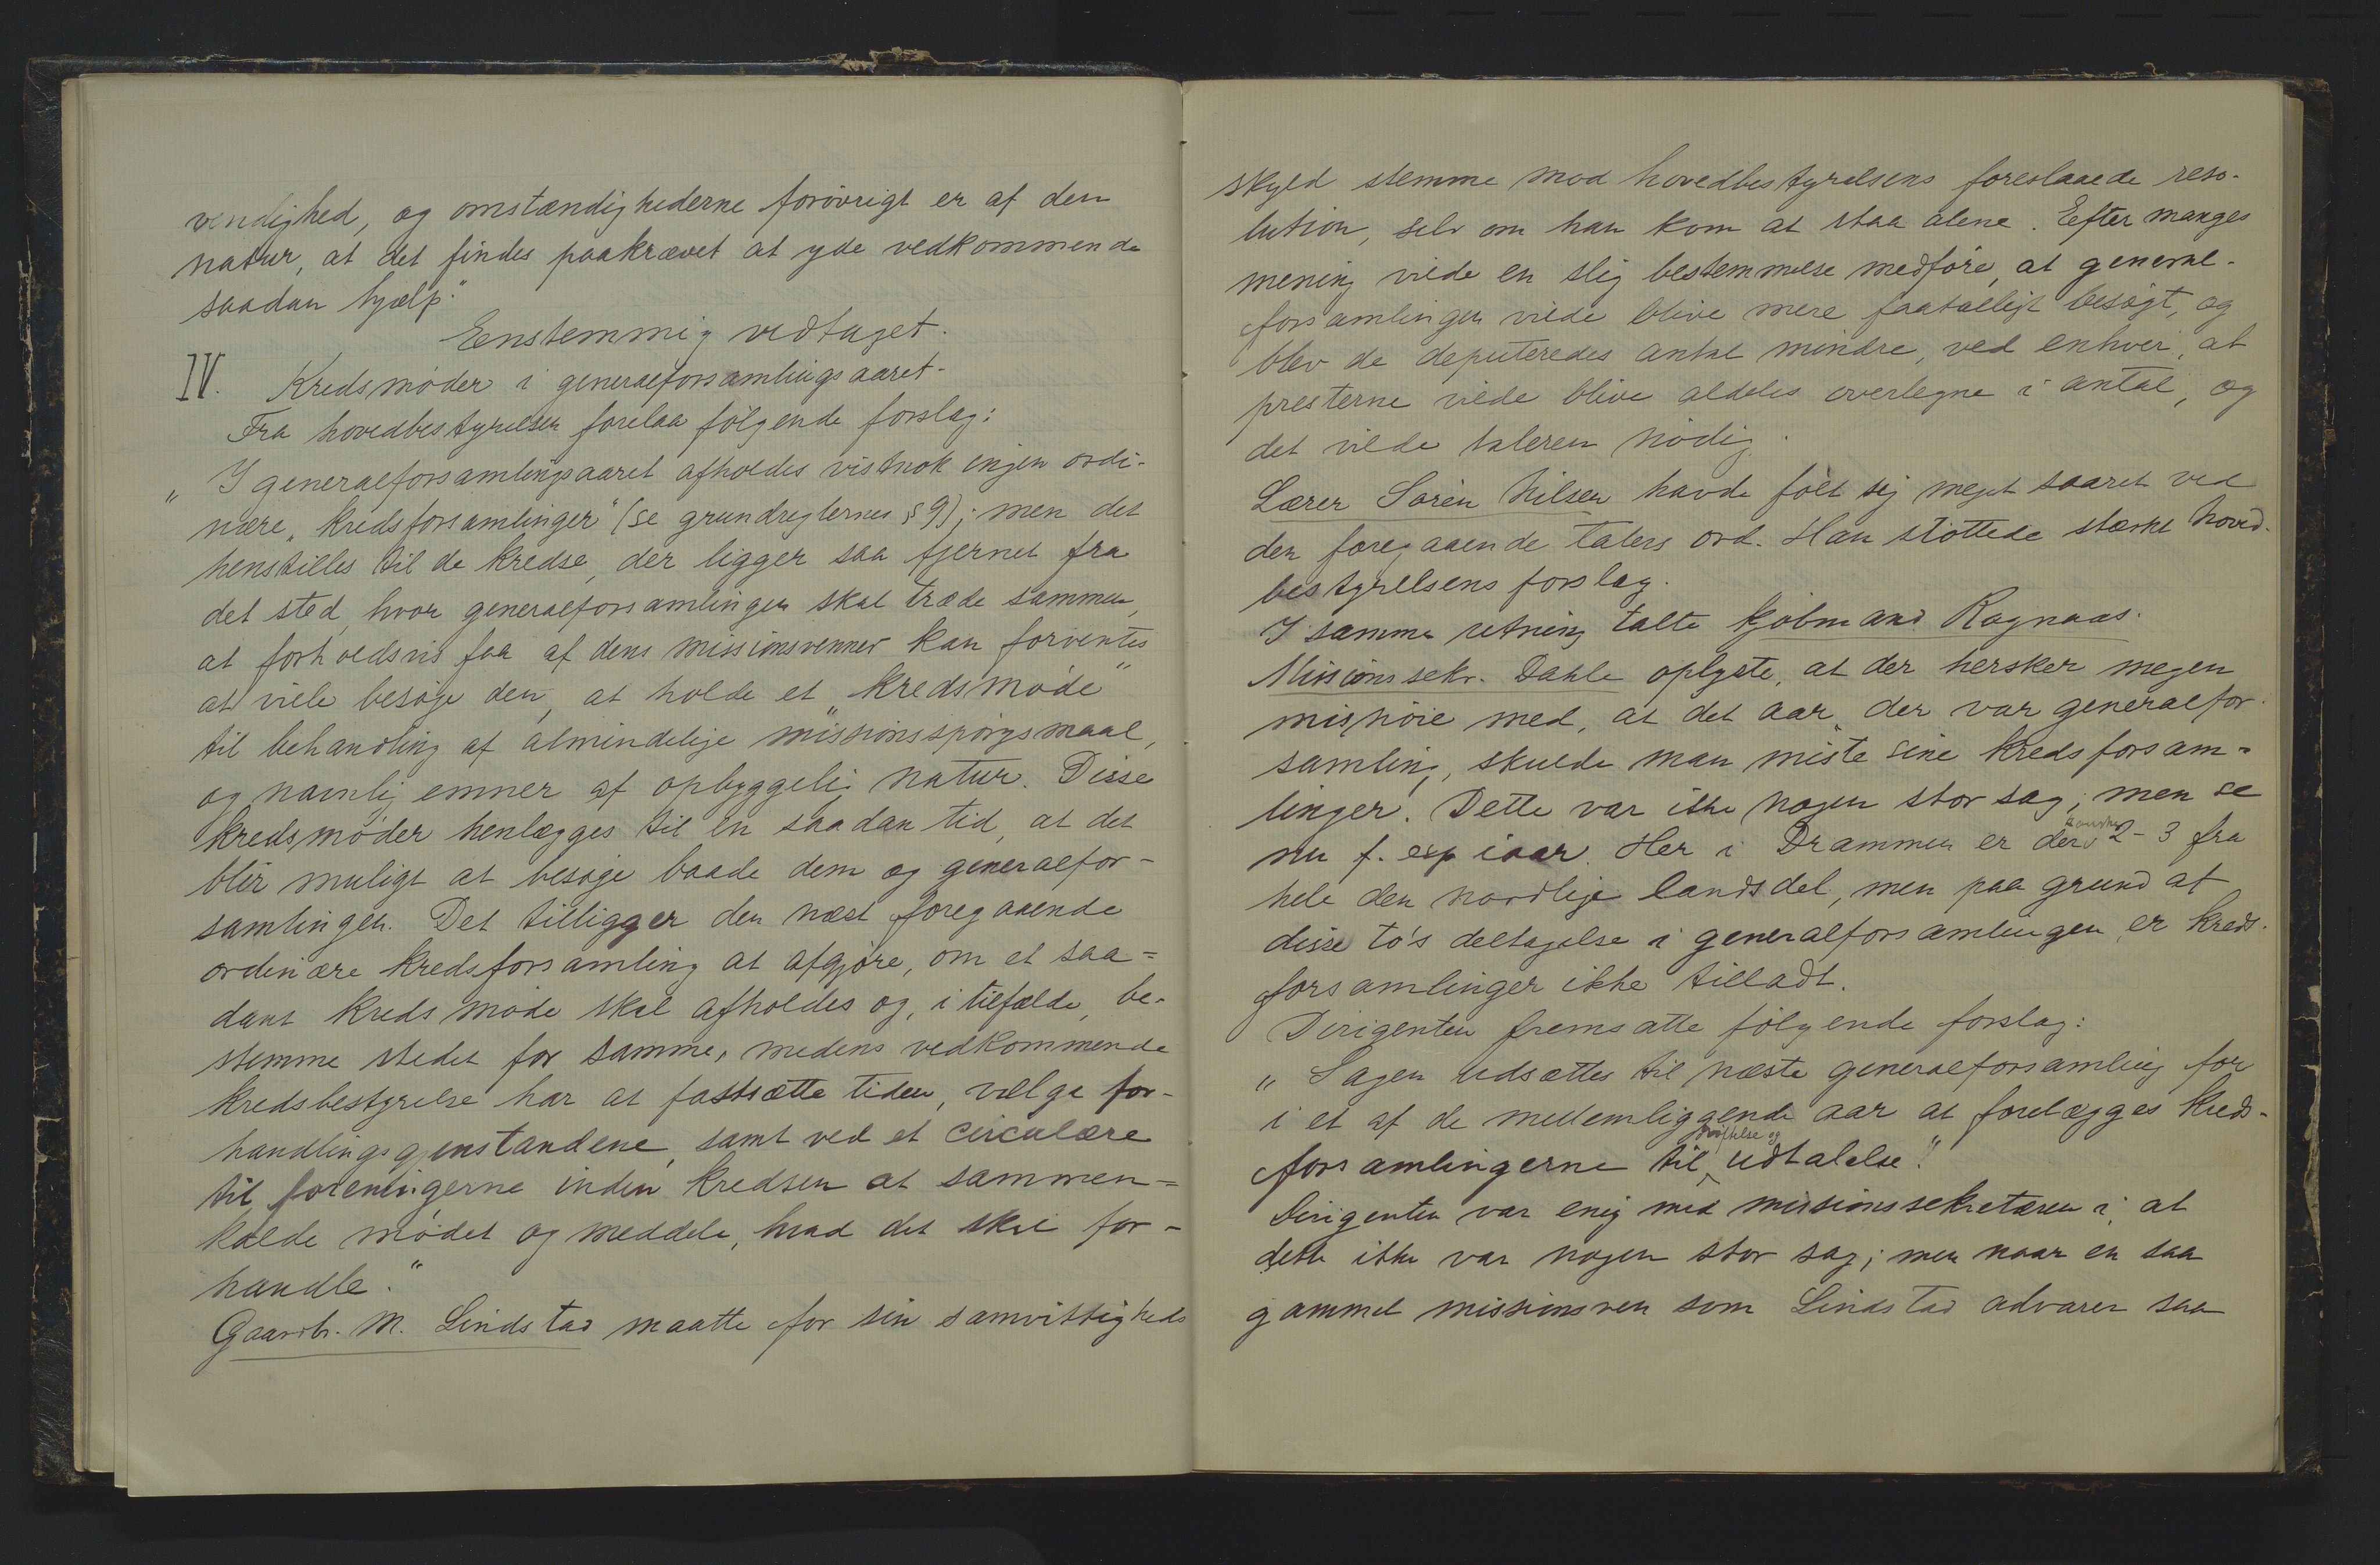 vendighed, og omstændighederne forøvrigt er af den
natur, at det findes paakrævet at yde vedkommende
saadan hjælp."
Eenstemmig vedtaget.
IV. Kredsmøder i generalforsamlingsaaret.
Fra hovedbestyrelsen forelaa følgende forslag:
„I generalforsamlingsaaret afholdes vistnok ingen ordi-
nære „kredsforsamlinger" (se grundreglernes § 9); men det
henstilles til de kredse, der ligger saa fjernet fra
det sted, hvor generalforsamlingen skal træde sammen,
at forholdsvis faa af dens missionsvenner kan forventes
at ville besøge den, at holde et „kredsmøde"
til behandling af almindelige missionsspørgsmaal,
og navnlig emner af opbyggelig natur. Disse
kredsmøder henlægges til en saadan tid, at det
blir muligt at besøge baade dem og generalfor-
samlingen. Det tilligger den næst foregaaende
ordinære kredsforsamling at afgjøre, om et saa=
dant kredsmøde skal afholdes og, i tilfælde, be-
stemme stedet for samme, medens vedkommende
kredsbestyrelse har at fastsætte tiden, vælge for-
handlingsgjenstandene, samt ved et circulære
til foreningerne inden kredsen at sammen=
kalde mødet og meddele, hvad det skal for-
handle."
Gaardbr. M. Lindstad maatte for sin samvittigheds
skyld stemme mod hovedbestyrelsens foreslaaede reso-
lution, selv om han kom at staa alene. Efter manges
mening vilde en slig bestemmelse medføre, at general-
forsamlingen vilde blive mere faatalligt besøgt, og
blev de deputeredes antal mindre, ved enhver, at
presterne vilde blive aldeles overlegne i antal, og
det vilde taleren nødig.
Lærer Søren Nilsen havde følt sig meget saaret ved
den foregaaende talers ord. Han støttede stærkt hoved-
bestyrelsens forslag.
I samme retning talte kjøbmand Ragnaas.
Missionssekr. Dahle oplyste, at der hersker megen
misnøie med, at det aar, der var generalfor-
samling, skulde man miste sine kredsforsam=
linger. Dette var ikke nogen stor sag; men se
nu f. exp iaar. Her i Drammen er der kanske 2-3 fra
hele den nordlige landsdel, men paa grund at
disse to's deltagelse i generalforsamlingen, er kreds-
forsamlinger ikke tilladt.
Dirigenten fremsatte følgende forslag:
„Sagen udsættes til næste generalforsamling for
i et af de mellemliggende aar at forelægges kreds-
forsamlingerne til drøftelse og udtalelse."
Dirigenten var enig med missionssekretæren i, at
dette ikke var nogen stor sag; men naar en saa
gammel missionsven som Lindstad advarer saa